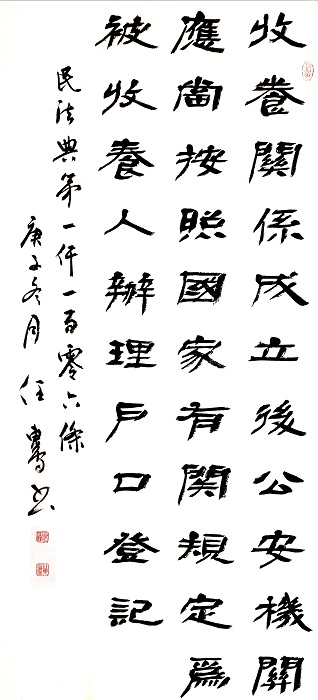 收養關係成立後公安機關
應當按照國家有関規定爲
被收養人辦理戶口登記
民法典第一仟一百零六條
庚子冬月任